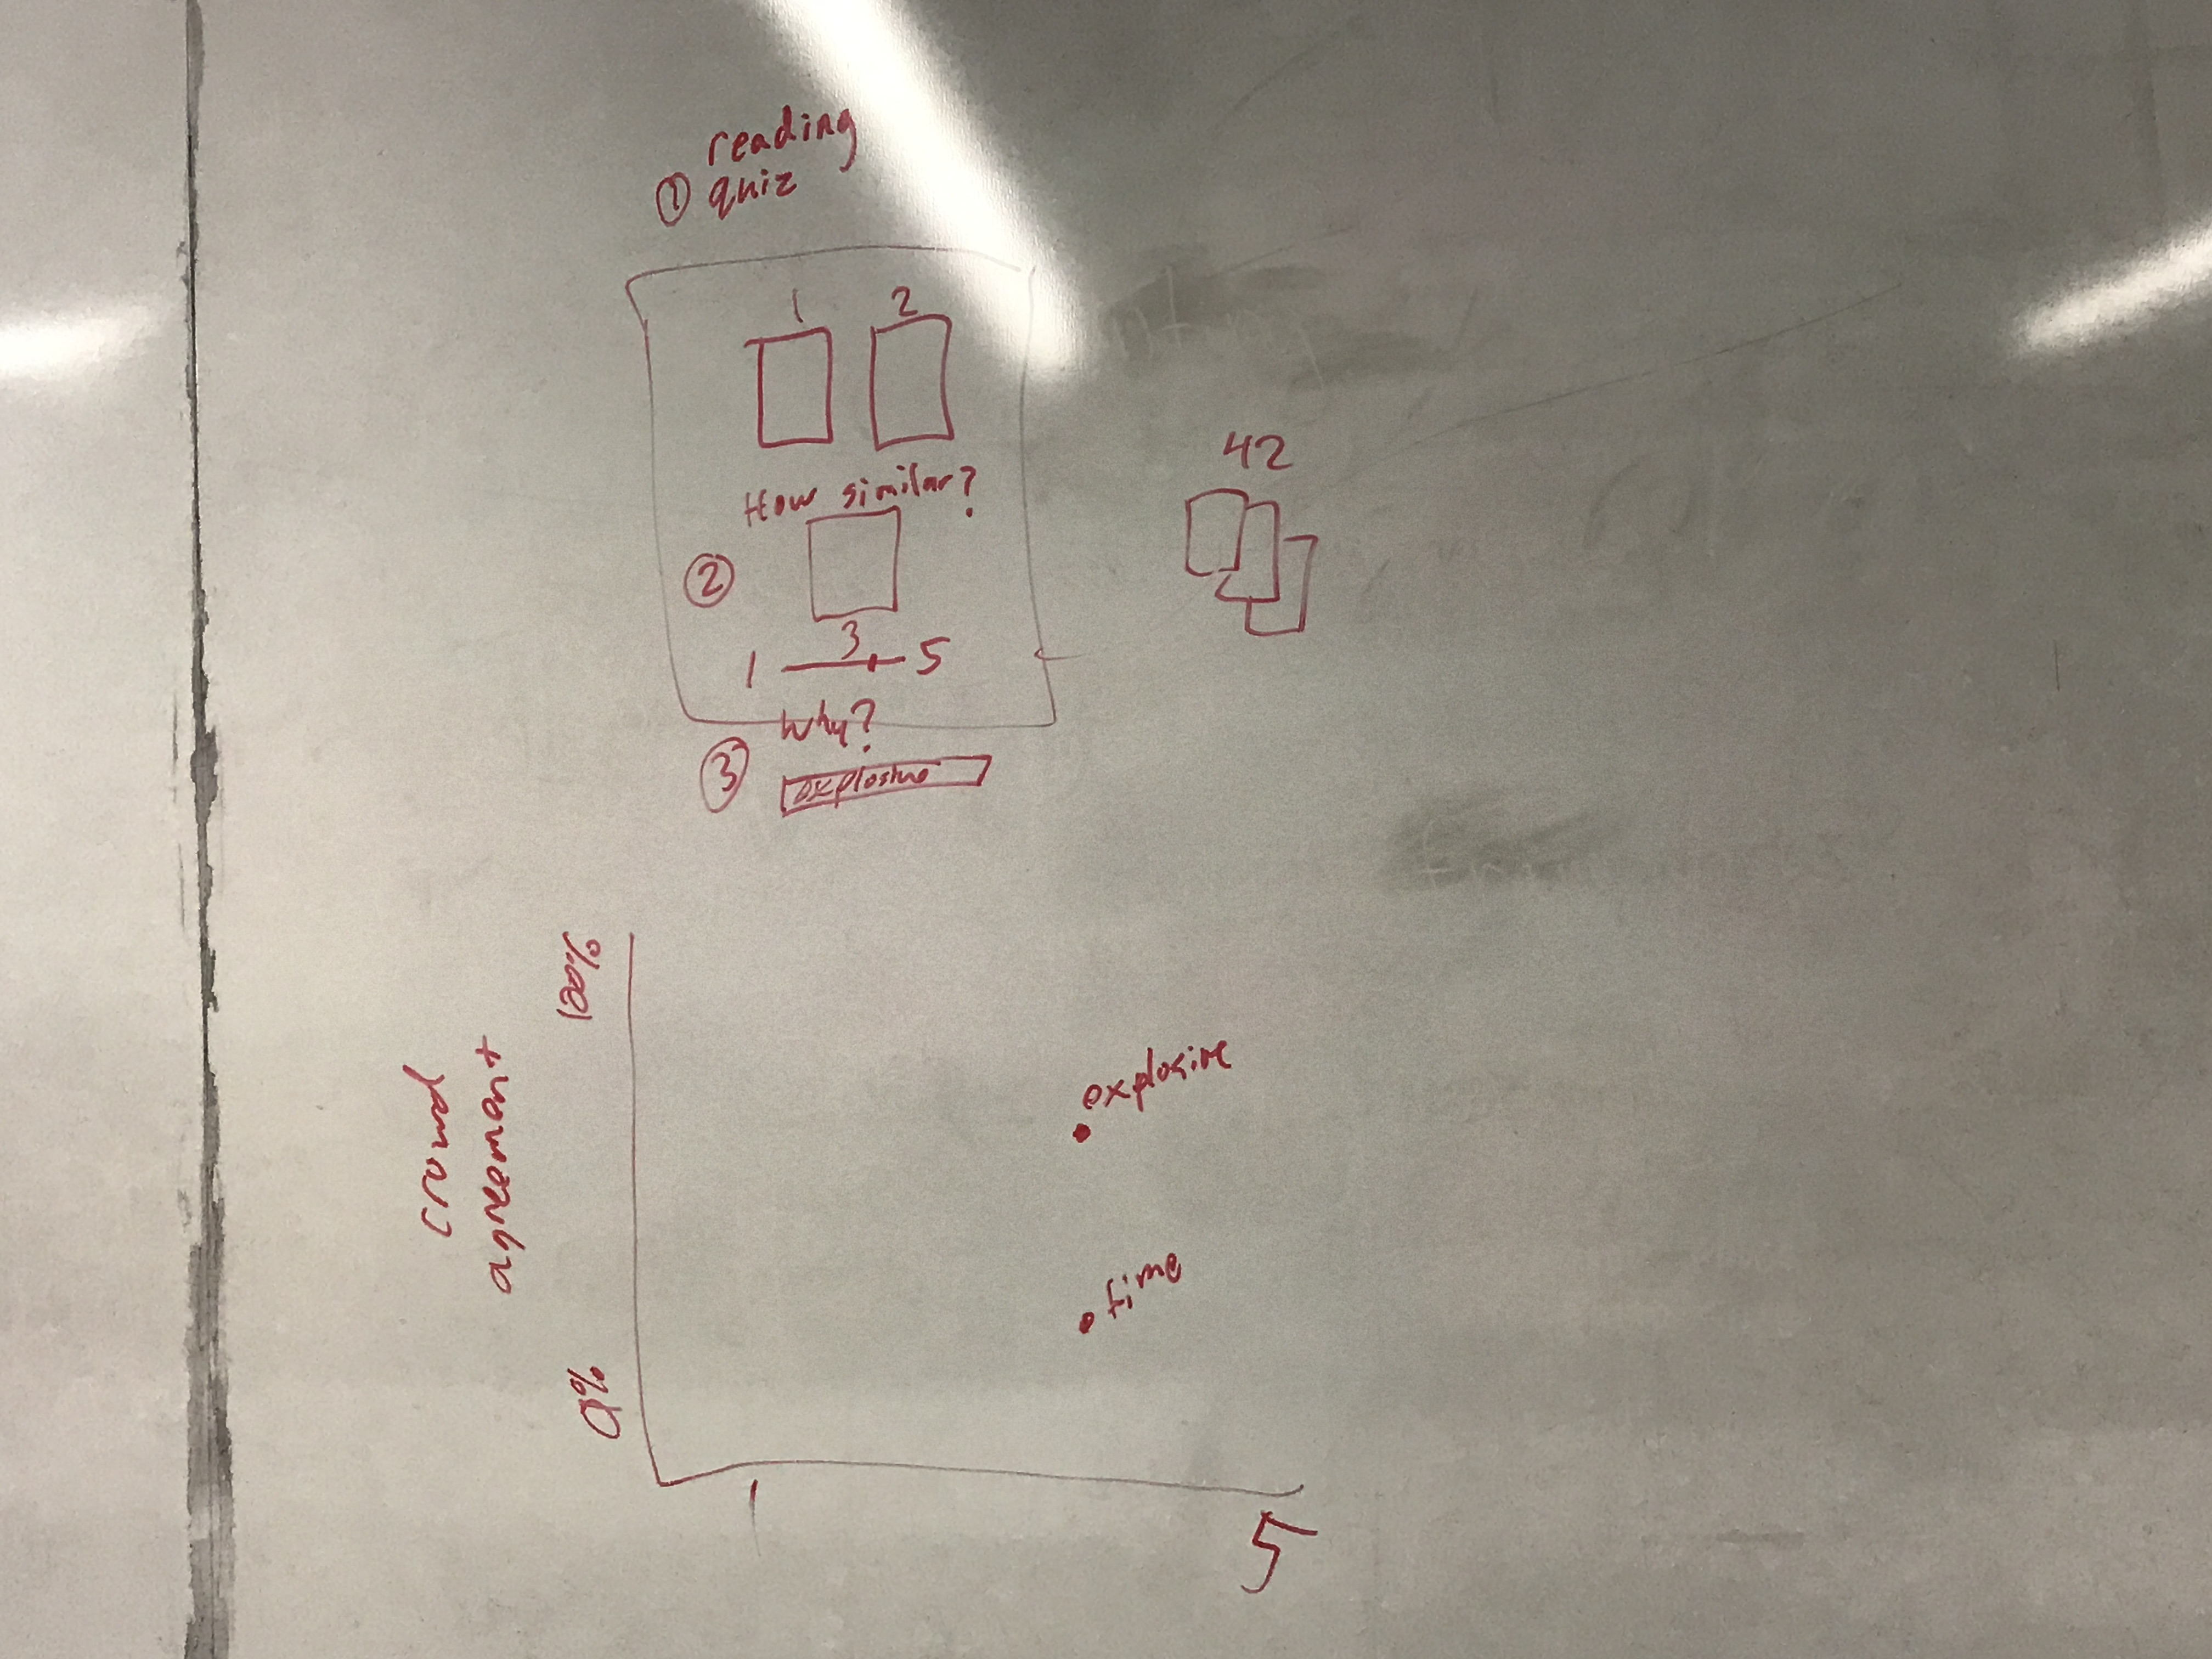 reading
① quiz
1 2
How similar?
②
3
1 5
Why?
③
explosive
42
100%
crowd
agreement
explosive
time
0%
1
5